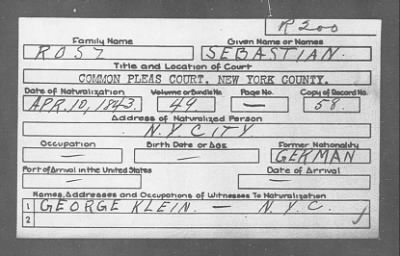 R200
Family Name Given Name or Names
ROST SEBASTIAN.
Title and Location of Court
COMMON PLEAS COURT, NEW YORK COUNTY.
Date of Naturalization Volume or Bundle No. Page No. Copy of Record No.
APR. 10, 1843. 49 — 58.
Address of Naturalized Person
N.Y. CITY
Occupation Birth Date or Age Former Nationality
— — GERMAN
Port of Arrival in the United States Date of Arrival
— —
Names, Addresses and Occupations of Witnesses To Naturalization
1 GEORGE KLEIN. — N.Y.C.
2